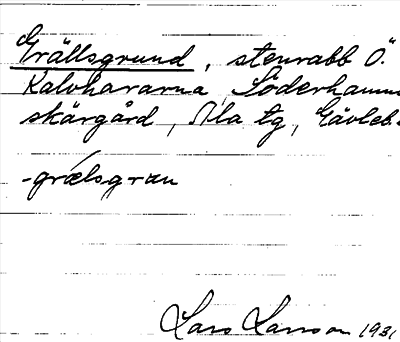 Grällsgrund, stenrabb Ö.
Kalvhararna, Söderhamns
skärgård, Ala tg, Gävleb.
-grælsgrɯn
Lars Larsson 1931